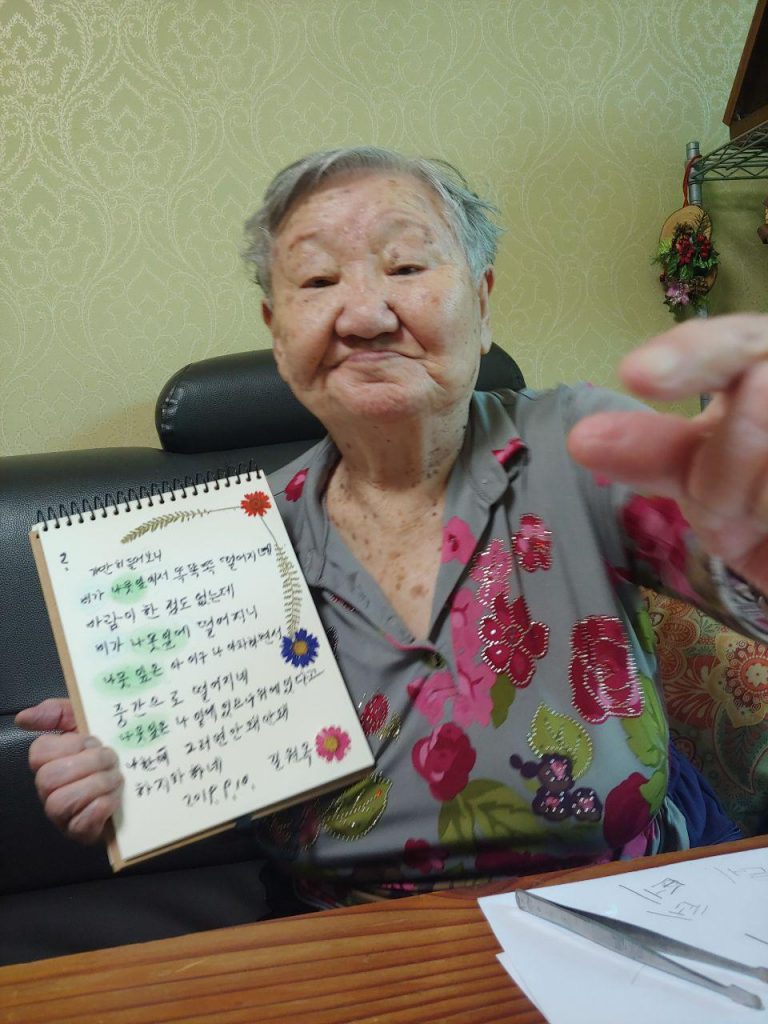 가만히 들어보니
비가 나뭇잎에서 똑똑똑 떨어지네
바람이 한 점도 없는데
비가 나뭇잎에 떨어지니
나뭇잎은 아이구 나 아파하면서
중간으로 떨어지네
나뭇잎은 나 밑에 있다고
나한테 그러면 안돼안돼
하지하하네 길원옥
2019.9.10.